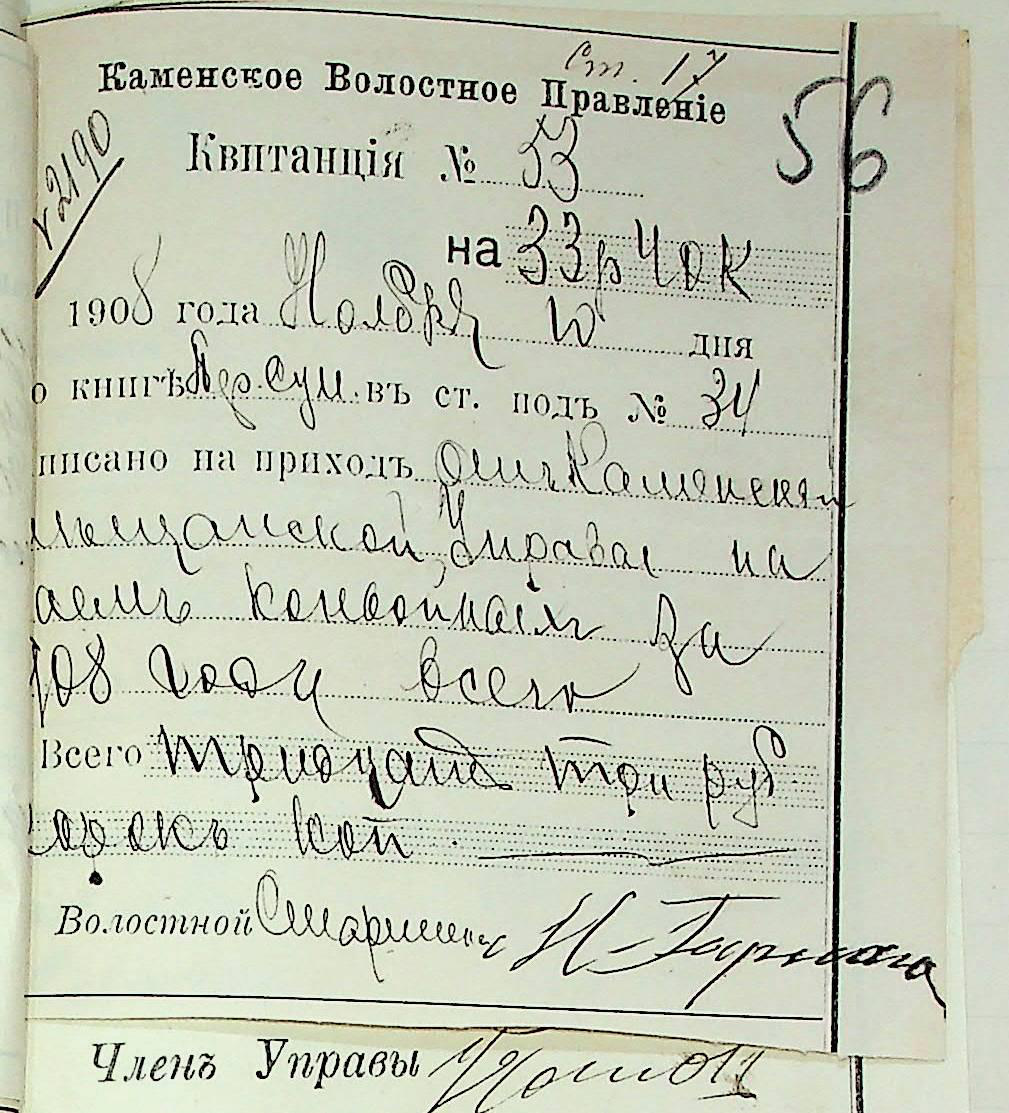 Ст. 17
Каменское Волостное Правленіе
56
№ 2190
Квитанція № 53
на 33 р 40 к
1908 года Ноября 10 дня
о книгѣ Пер. Сум. въ ст. подъ № 34
писано на приходъ отъ Каменской
мѣщанской Управы на
аемъ конвойныхъ за
908 годъ всего
Всего тридцать три руб
сорокъ коп.
Волостной Старшина
Членъ Управы